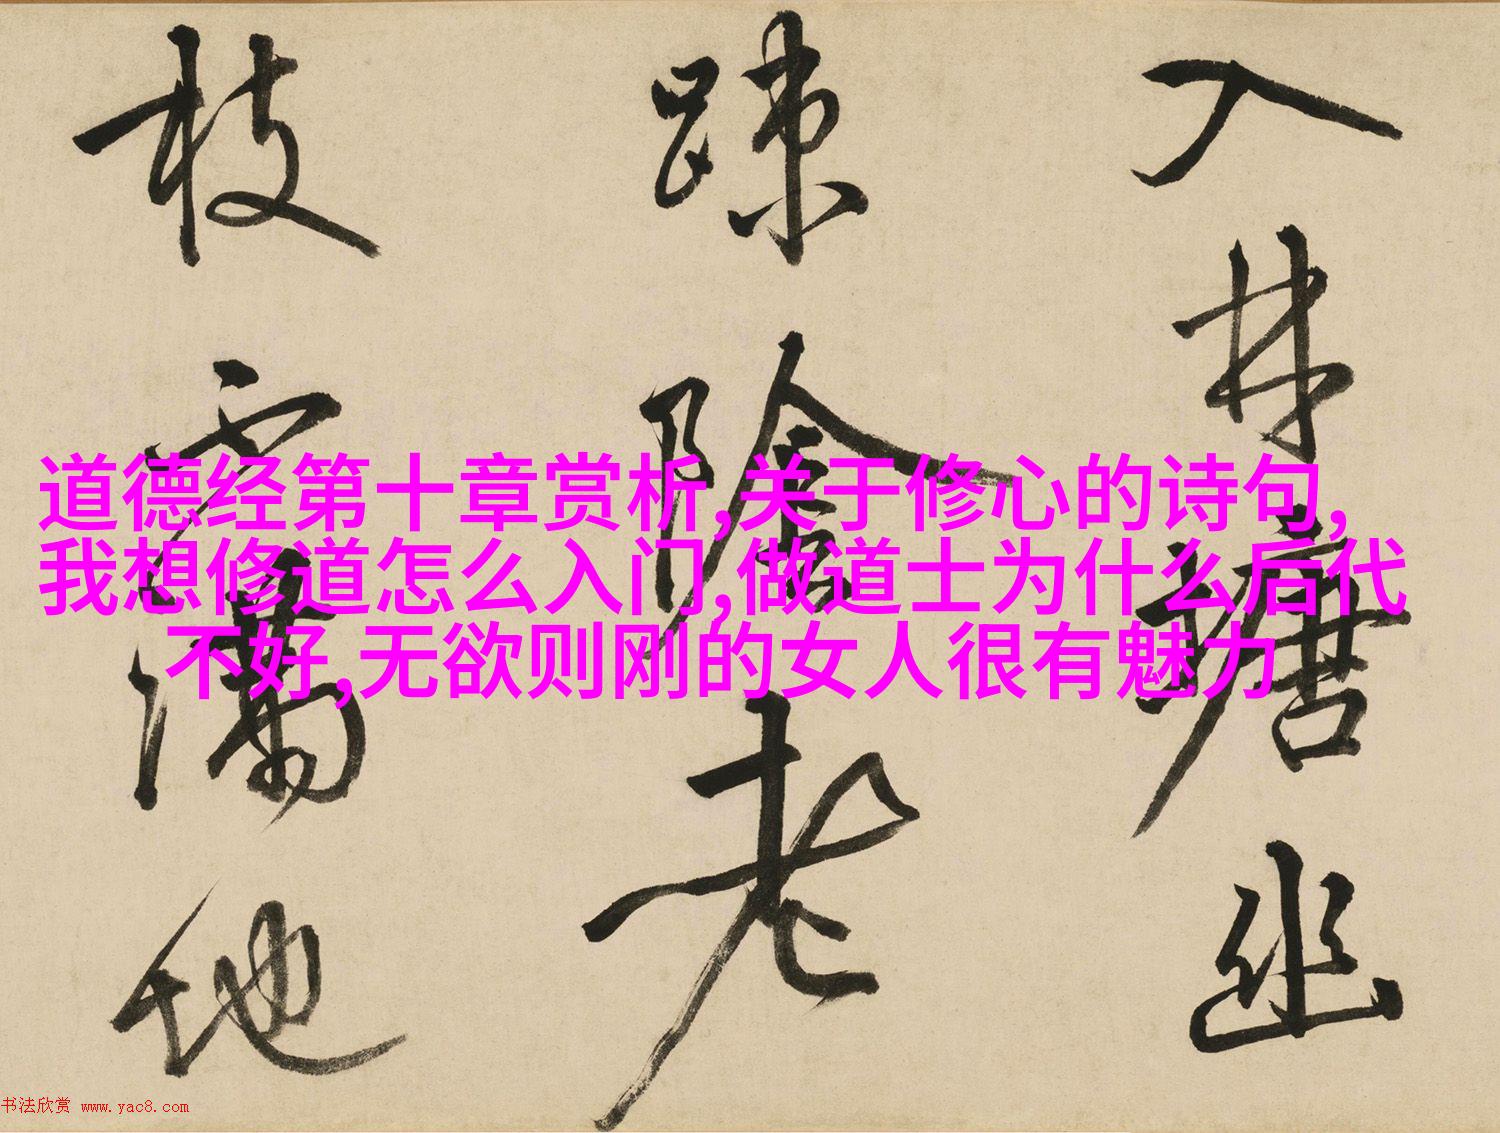 道德经第十章赏析,关于修心的诗句,
我想修道怎么入门,做道士为什么后代
不好,无欲则刚的女人很有魅力
入林
幽
疎陰老
枝
滿地
书法欣赏 www.yac8.com